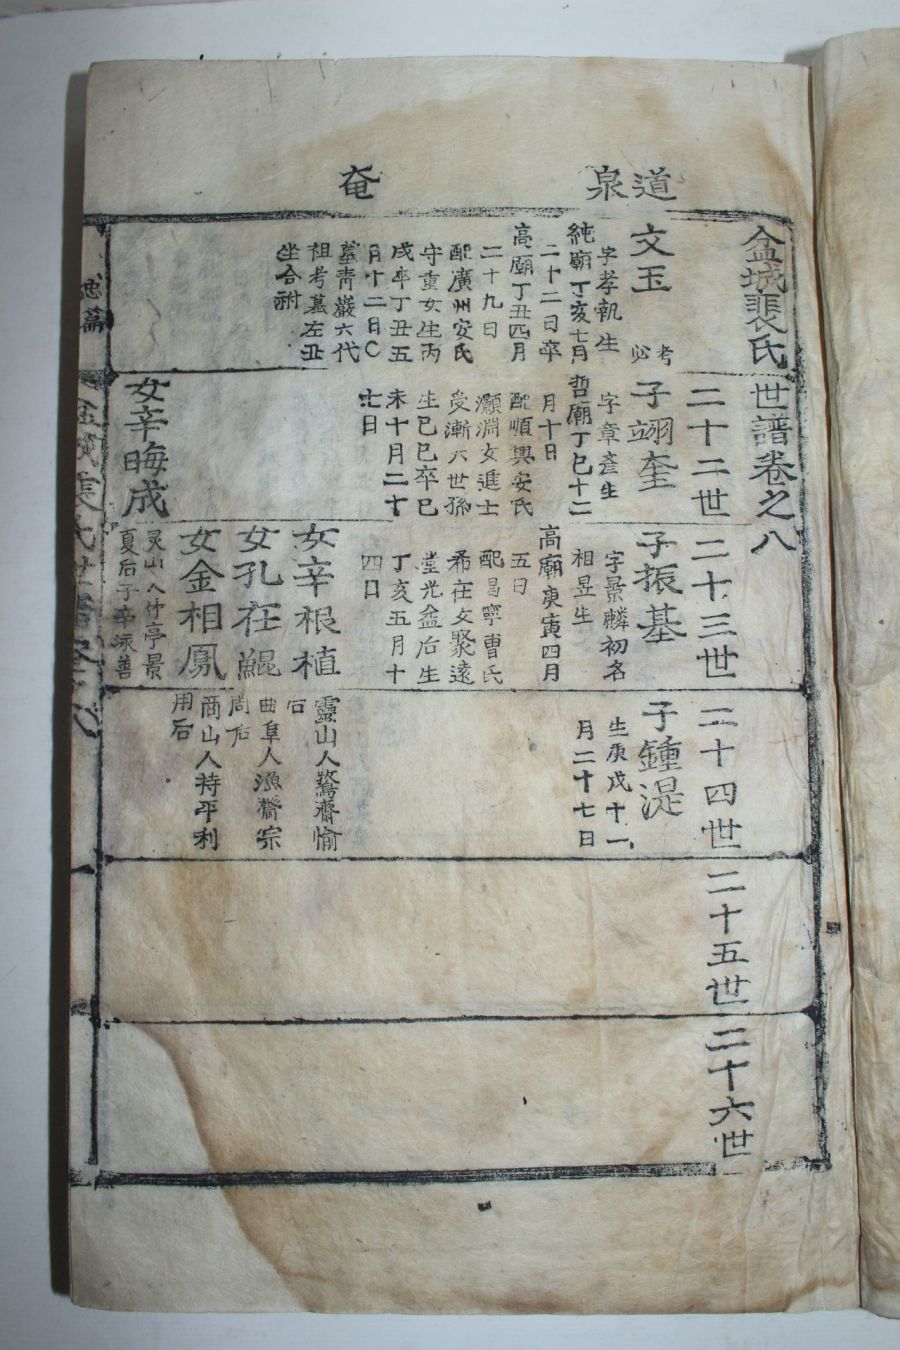 道泉
奄
盆城裴氏世譜卷之八
二十二世
二十三世
二十四世
二十五世
二十六世
文玉
考必
字孝執生
純廟丁亥七月
二十二日卒
高廟丁丑四月
二十九日
配廣州安氏
守重女生丙
戌卒丁丑五
月十二日
墓靑巖六代
祖考墓左丑
坐合祔
子翊奎
字章彥生
哲廟丁巳十二
月十日
配順興安氏
灝淵女進士
受漸六世孫
生巳巳卒巳
未十月二十
七日
女辛晦成
子振基
字景麟初名
相昱生
高廟庚寅四月
五日
配昌寧曺氏
希在女聚遠
堂光益后生
丁亥五月十
四日
女辛根植
女孔在鯤
女金相鳳
灵山人竹亭景
夏后子辛泳善
子鍾湜
生庚戌十一
月二十七日
靈山人鷲齋愉
后
曲阜人漁齋宗
周后
商山人持平利
用后
忠篇
盆城裴氏世譜卷八